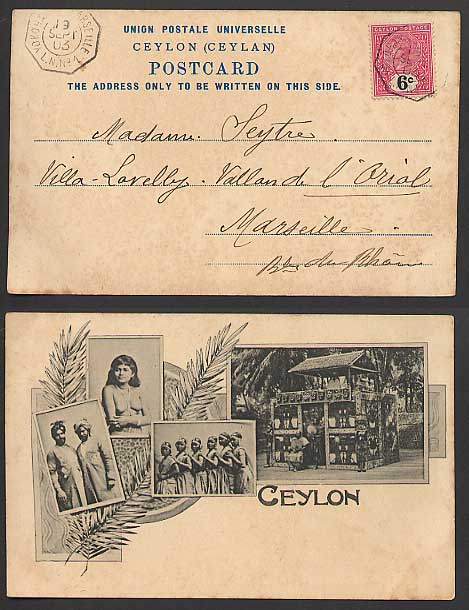 UNION POSTALE UNIVERSELLE
CEYLON (CEYLAN)
POSTCARD
THE ADDRESS ONLY TO BE WRITTEN ON THIS SIDE.
19
SEPT
03
CEYLON POSTAGE
6c
Madame Seytre
Villa-Lovelly. Vallon de l'Oriol
Marseille
Bches du Rhône
CEYLON